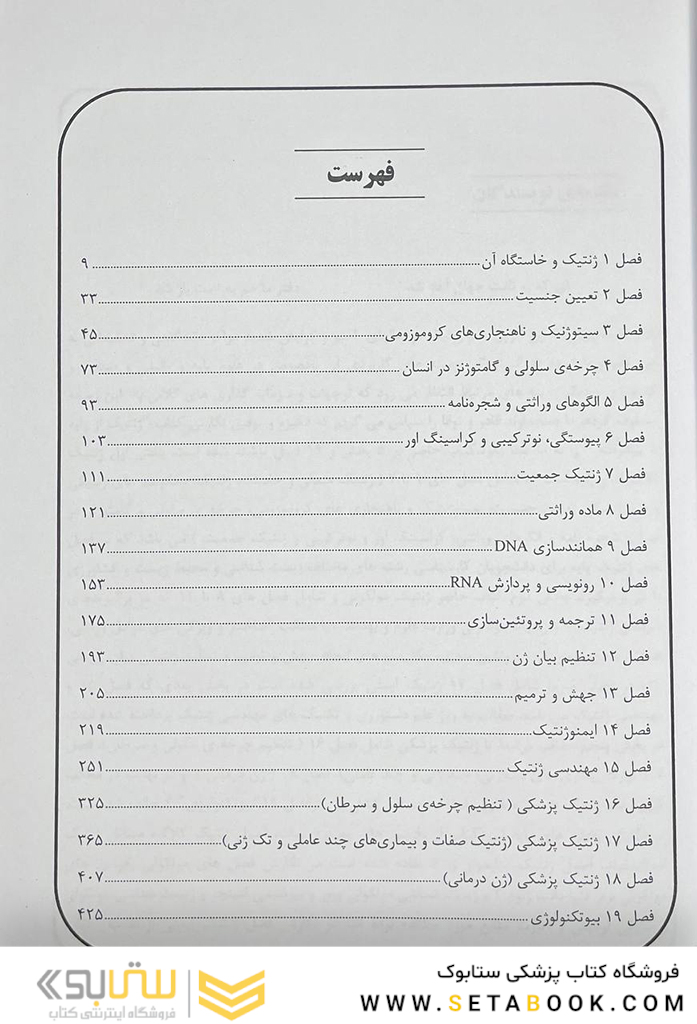 فهرست
فصل ۱ ژنتیک و خاستگاه آن ........ ۹
فصل ۲ تعیین جنسیت ........ ۳۳
فصل ۳ سیتوژنیک و ناهنجاری‌های کروموزومی ........ ۴۵
فصل ۴ چرخه‌ی سلولی و گامتوژنز در انسان ........ ۷۳
فصل ۵ الگوهای وراثتی و شجره‌نامه ........ ۹۳
فصل ۶ پیوستگی، نوترکیبی و کراسینگ اور ........ ۱۰۳
فصل ۷ ژنتیک جمعیت ........ ۱۱۱
فصل ۸ ماده وراثتی ........ ۱۲۱
فصل ۹ همانندسازی DNA ........ ۱۳۷
فصل ۱۰ رونویسی و پردازش RNA ........ ۱۵۳
فصل ۱۱ ترجمه و پروتئین‌سازی ........ ۱۷۵
فصل ۱۲ تنظیم بیان ژن ........ ۱۹۳
فصل ۱۳ جهش و ترمیم ........ ۲۰۵
فصل ۱۴ ایمنوژنتیک ........ ۲۱۹
فصل ۱۵ مهندسی ژنتیک ........ ۲۵۱
فصل ۱۶ ژنتیک پزشکی ( تنظیم چرخه‌ی سلول و سرطان) ........ ۳۲۵
فصل ۱۷ ژنتیک پزشکی (ژنتیک صفات و بیماری‌های چند عاملی و تک ژنی) ........ ۳۶۵
فصل ۱۸ ژنتیک پزشکی (ژن درمانی) ........ ۴۰۷
فصل ۱۹ بیوتکنولوژی ........ ۴۲۵
فروشگاه کتاب پزشکی ستابوک
WWW.SETABOOK.COM
ستابوک
فروشگاه اینترنتی کتاب